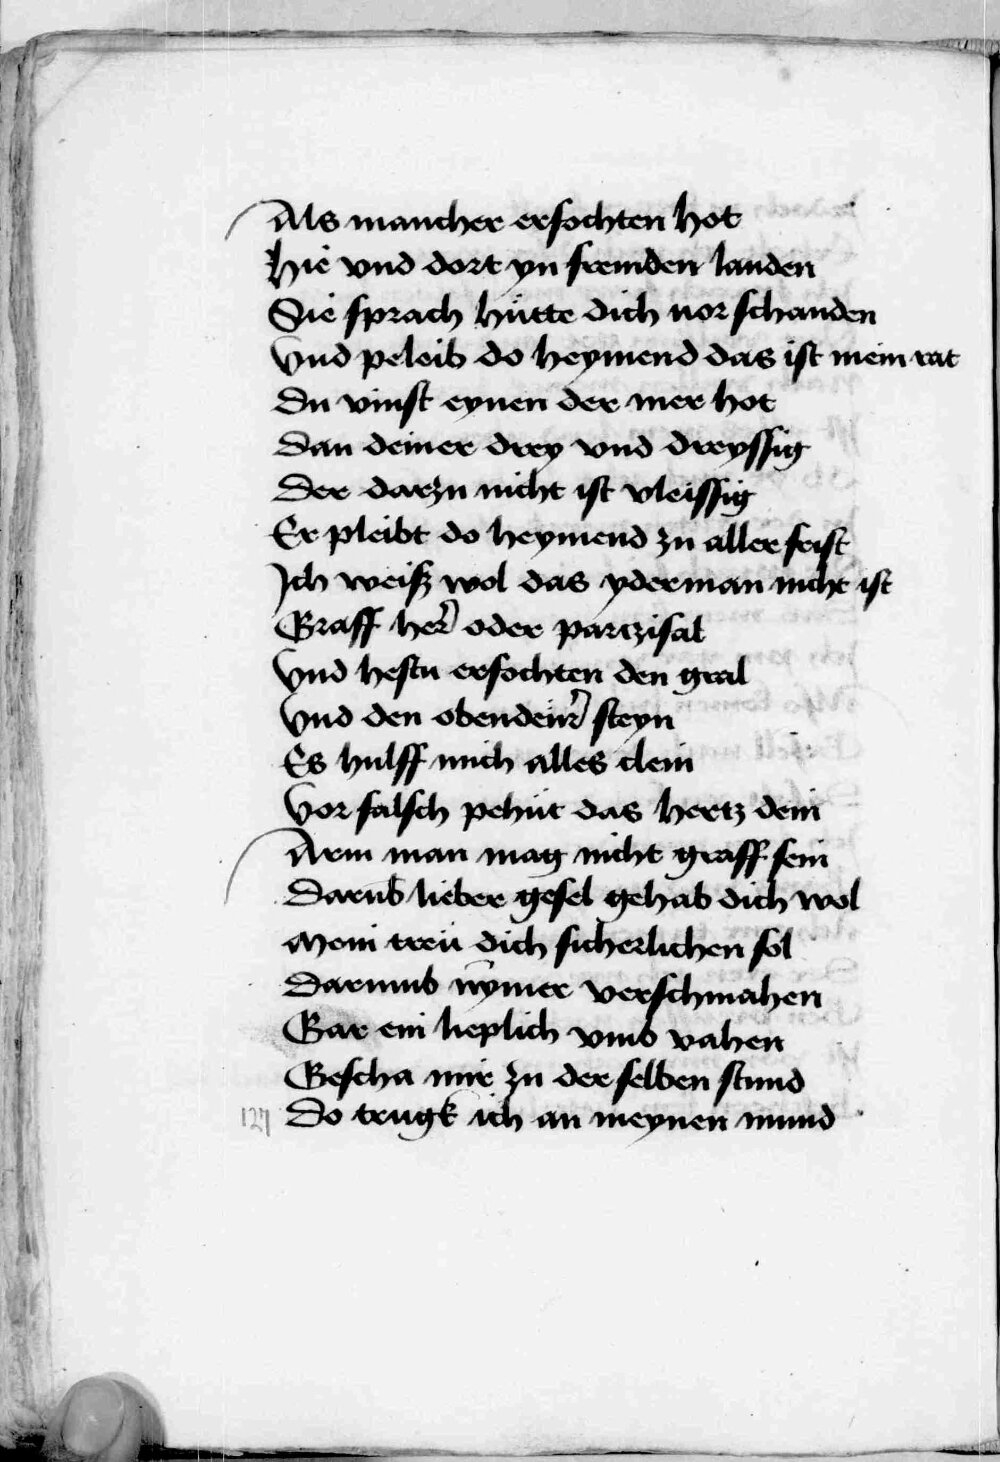 Als mancher erfochten hot
Hie vnd dort yn fremden landen
Sie sprach hütte dich vor schanden
Vnd peleib do heymend das ist mein rat
Du vinst eynen der mer hot
Dan deiner drey vnd dreyssig
Der darzu nicht ist vleissig
Er pleibt do heymend zu aller frist
Ich weisz wol das yderman nicht ist
Graff her̄ oder partzifal
Vnd hestu erfochten den gral
Vnd den obendeur̄ steyn
Es hulff mich alles clein
Vor falsch pehüt das hertz dein
Arm man mag nicht graff sein
Darūb lieber gesel gehab dich wol
Mein treü dich sicherlichen sol
Darumb nȳmer verschmahen
Gar ein lieplich vmb vahen
Gescha mir zu der selben stund
127 Do trugk ich an meynen mund